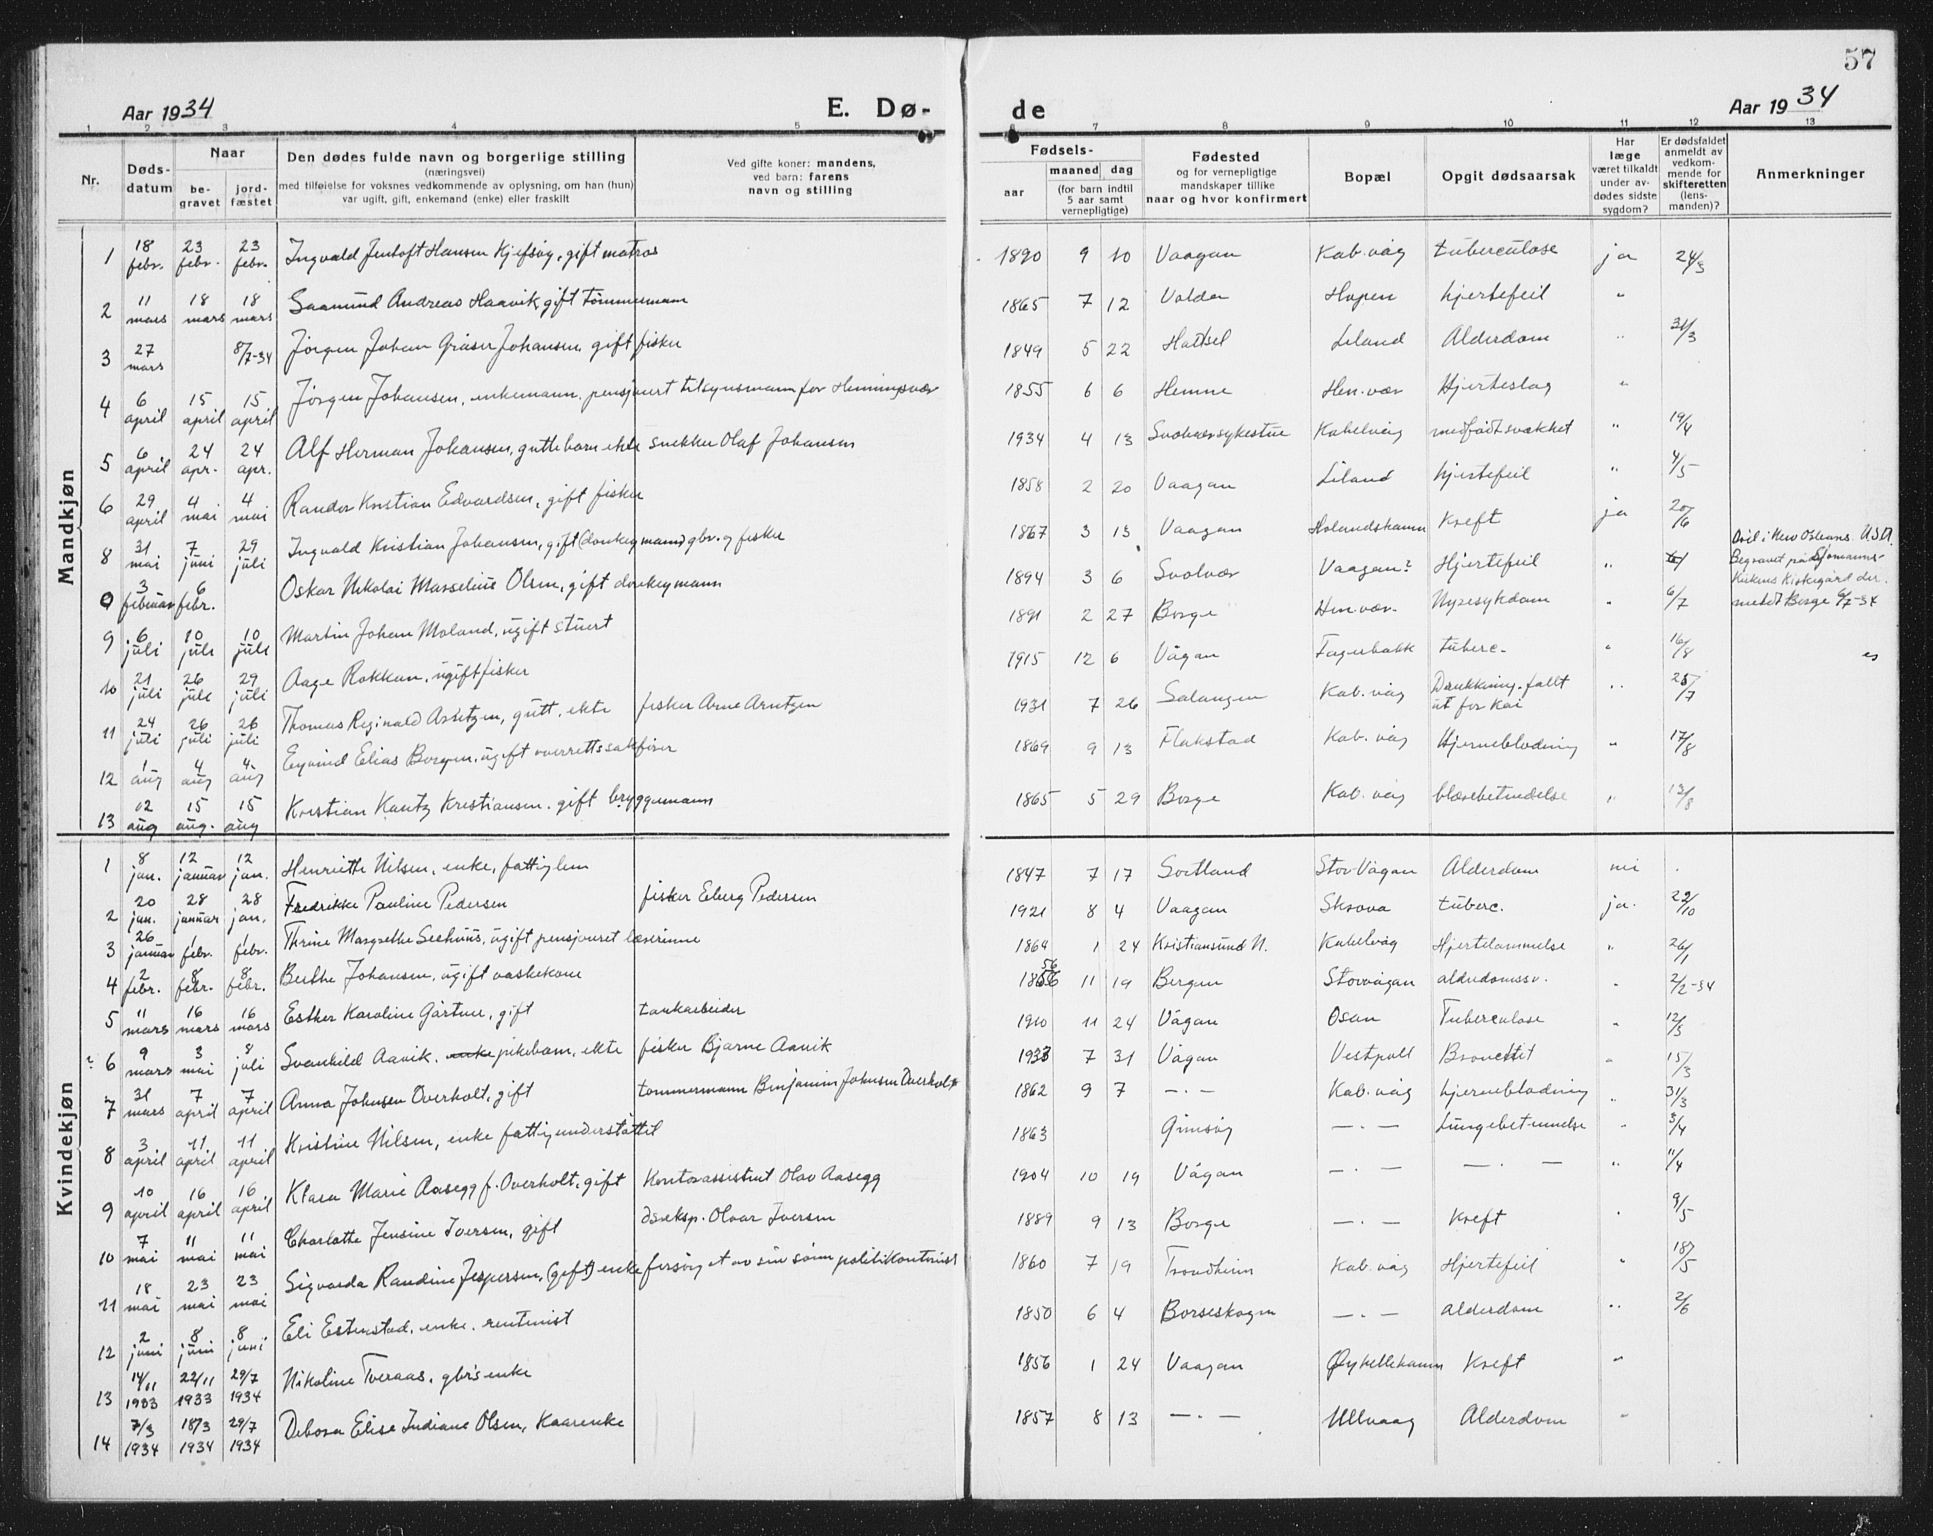 57
Aar 1934 E. Dø- de Aar 1934
1 2 3 4 5 6 7 8 9 10 11 12 13
Nr. Døds-datum Naar be-gravet jord-fæstet Den dødes fulde navn og borgerlige stilling (næringsvei) med tilføielse for voksnes vedkommende av oplysning, om han (hun) var ugift, gift, enkemand (enke) eller fraskilt Ved gifte koner: mandens, ved barn: farens navn og stilling Fødsels- aar maaned dag (for barn indtil 5 aar samt vernepligtige) Fødested og for vernepligtige mandskaper tillike naar og hvor konfirmert Bopæl Opgit dødsaarsak Har læge været tilkaldt under av-dødes sidste sygdom? Er dødsfaldet anmeldt av vedkom-mende for skifteretten (lens-manden)? Anmerkninger
Mandkjøn
1 18 febr. 23 febr. 23 febr. Ingvald Jentoft Hansen Kjefsøy, gift matros 1890 9 10 Vaagan Kab.våg tuberculose ja 24/3
2 11 mars 18 mars 18 mars Saamund Andreas Haavik, gift Tømmermann 1865 7 12 Volden Hopen hjertefeil "
3 27 mars 8/7-34 Jørgen Johan Gräser Johansen, gift fisker 1849 5 22 Hadsel Liland Alderdom " 31/3
4 6 april 15 april 15 april Jørgen Johansen, enkemann, pensjonert tilsynsmann for Henningsvær 1855 6 6 Hemne Hen.vær Hjerteslag "
5 6 april 24 apr. 24 apr. Alf Herman Johansen, guttebarn ekte snekker Olaf Johansen 1934 4 13 Svolvær sykestue Kabelvåg medfødt svakhet " 19/4
6 29 april 4 mai 4 mai Randor Kristian Edvardsen, gift fisker 1858 2 20 Vaagan Liland hjertefeil " 4/5
8 31 mai 7 juni 29 juli Ingvald Kristian Johansen, gift (donkeymann) gbr. og fisker 1867 3 13 Vaagan Holandshamn Kreft ja 20/6
0 3 februar 6 febr. Oskar Nikolai Marselius Olsen, gift donkeymann 1894 3 6 Svolvær Vaagan? Hjertefeil " Død i New Orleans. U.S.A. Begravet på Sjømanns-kirkens kirkegård der. meldt Borge 6/7-34
9 6 juli 10 juli 10 juli Martin Johan Moland, ugift stuert 1891 2 27 Borge Hen.vær. Nyresykdom " 6/7
10 21 juli 26 juli 29 juli Aage Rokkan, ugift fisker 1915 12 6 Vågan Fagerbakk tuberc. " 16/8
11 24 juli 26 juli 26 juli Thomas Reginald Arntzen, gutt, ekte fisker Arne Arntzen 1931 7 26 Salangen Kab.våg Drukkning. fallt ut for kai " 25/7
12 1 aug 4 aug 4. aug Eyvind Elias Borgen, ugift overrettssakfører 1869 9 13 Flakstad Kab. våg Hjerneblødning " 17/8
13 12 aug 15 aug. 15 aug Kristian Kautz Kristiansen. gift bryggemann 1865 5 29 Borge Kab. våg blærebetendelse " 13/8
Kvindekjøn
1 8 jan. 12 januar 12 jan. Henriette Nilsen, enke, fattiglem 1847 7 17 Sortland Stor-Vågan Alderdom nei
2 20 jan. 28 januar 28 jan. Fredrikke Pauline Pedersen fisker Eberg Pedersen 1921 8 4 Vaagan Skrova tuberc. ja. 22/10
3 26 januar 1 febr. 1 febr. Thrine Margrethe Seehuus, ugift pensjonert lærerinne 1864 1 24 Kristiansund N. Kabelvåg Hjertelammelse " 26/1
4 2 febr. 8 febr. 8 febr. Berthe Johansen, ugift vaskekone 1856 11 19 Bergen Storvågan alderdomssv. " 2/2-34
5 11 mars 16 mars 16 mars Esther Karoline Gärtner, gift tankarbeider 1910 11 24 Vågan Osan Tuberculose " 12/3
? 6 9 mars 3 mai 8 juli Svanhild Aavik. enke pikebarn, ekte fisker Bjarne Aavik 1933 7 31 Vågan Vestpoll Bronchit " 15/3
7 31 mars 7 april 7 april Anna Johnsen Overholt, gift tømmermann Benjamin Johnsen Overholt 1862 9 7 — . — Kab. våg hjerneblødning " 31/3
8 3 april 11 april 11 april Kristine Nilsen, enke fattigunderstøttet 1863 Gimsøy — . — Lungebetennelse " 3/4
9 10 april 16 april 16 april Klara Marie Aasegg f. Overholt, gift Kontorassistent Olav Aasegg 1904 10 19 Vågan — . — — . — " 11/4
10 7 mai 11 mai 11 mai Charlotte Jensine Iversen, gift dseksp. Olvar Iversen 1889 9 13 Borge — . — Kreft " 9/5
11 18 mai 23 mai 23 mai Sigvarda Randine Jespersen, (gift) enke forsørget av sin sønn politikonstabel 1860 7 19 Trondheim Kab. våg Hjertefeil " 18/5
12 2 juni 8 juni 8 juni Eli Estenstad, enke. rentenist 1850 6 4 Børseskogn — . — alderdom " 2/6
13 14/11 1933 22/11 1933 29/7 1934 Nikoline Tveraas, gbr's enke 1856 1 24 Vaagan Øyhellehamn Kreft "
14 7/3 1934 18/3 1934 29/7 1934 Debora Elise Indiane Olsen, Kaarenke 1857 8 13 — . — Ullvaag Alderdom "